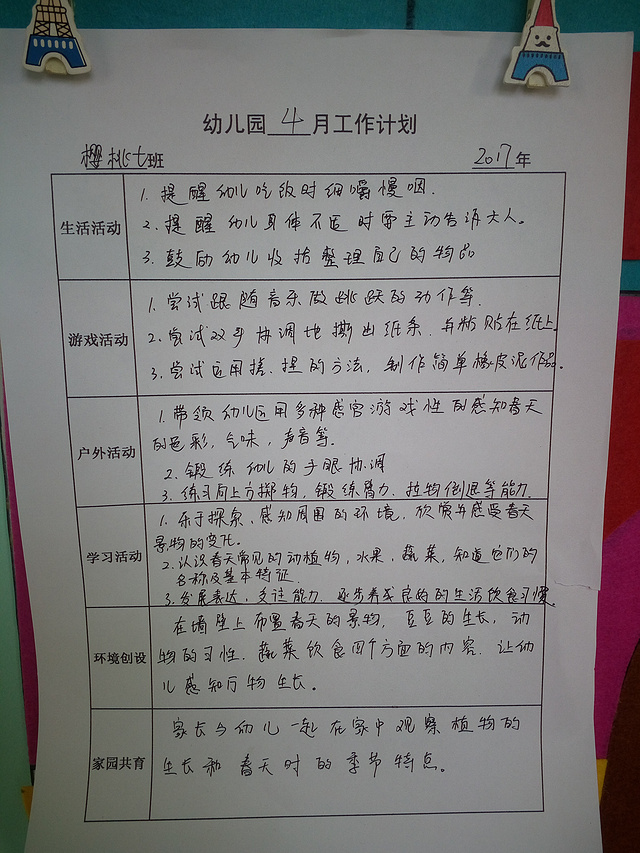 幼儿园4月工作计划
樱桃七班 2017年
生活活动
1. 提醒幼儿吃饭时细嚼慢咽.
2. 提醒幼儿身体不适时要主动告诉大人。
3. 鼓励幼儿收拾整理自己的物品
游戏活动
1. 尝试跟随音乐做跳跃的动作等.
2. 尝试双手协调地撕出纸条.并粘贴在纸上.
3. 尝试运用搓.捏的方法,制作简单橡皮泥作品.
户外活动
1. 带领幼儿运用多种感官游戏性的感知春天
的色彩,气味,声音等.
2. 锻练幼儿的手眼协调
3. 练习向上方掷物,锻练臂力.拉物倒退等能力.
学习活动
1. 乐于探索、感知周围的环境.欣赏并感受春天
景物的变化。
2. 认识春天常见的动植物,水果,蔬菜,知道它们的
名称及基本特征.
3. 发展表达,交往能力.逐步养成良好的生活饮食习惯.
环境创设
在墙壁上布置春天的景物,豆豆的生长,动
物的习性.蔬菜饮食四个方面的内容.让幼
儿感知万物生长。
家园共育
家长与幼儿一起在家中观察植物的
生长和春天时的季节特点。